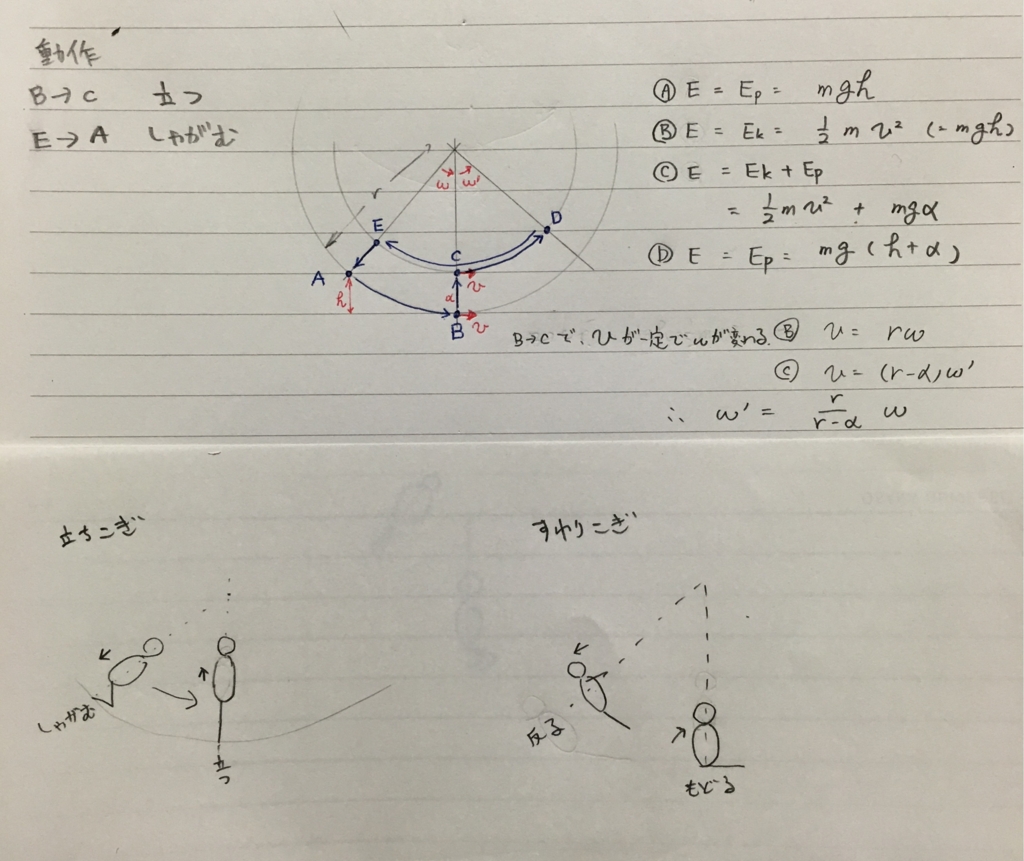 動作
B→C 立つ
E→A しゃがむ
Ⓐ E = Ep = mgh
Ⓑ E = Ek = 1/2 m v² (= mgh)
Ⓒ E = Ek + Ep
= 1/2 m v² + mgα
Ⓓ E = Ep = mg (h+α)
r
ω ω'
E
D
A
C
h
α
v
B
v
B→Cで、vが一定でωが変わる。
Ⓑ v = rω
Ⓒ v = (r-α)ω'
∴ ω' = r/(r-α) ω
立ちこぎ
すわりこぎ
しゃがむ
立つ
反る
もどる